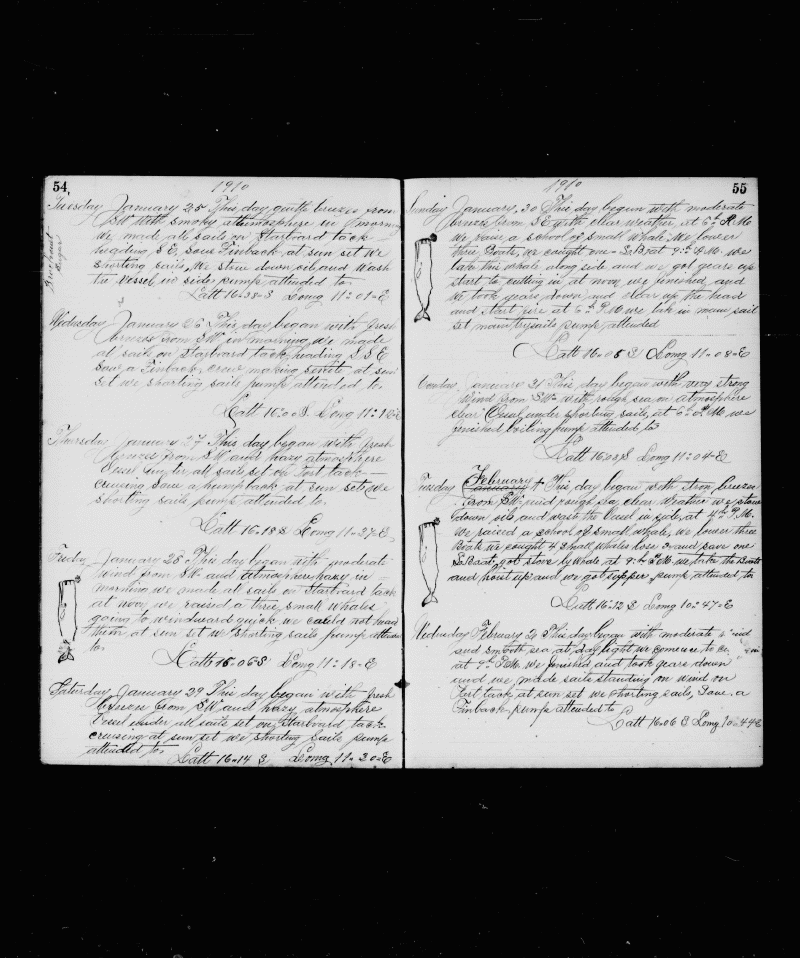 54
1910
Tuesday January 25 This day quite breezes from
SW with smoky atmosphere in morning
we made all sails on Starboard tack
heading S E, Saw Finback at sun set we
shorting sails, We stow down oil and Wash
the Vessel in side pump attended to
Latt 16-38-S Long 11-01-E
Wednesday January 26 This day began with fresh
breezes from SW in morning we made
all sails on Starboard tack heading S S E
Saw a Finback, crew making senite at sun
set we shorting sails pump attended to.
Latt 16-00 S Long 11-16-E
Thursday January 27 This day began with fresh
breezes from SW and hazy atmosphere
Vessel under all sails set on Port tack
cruising Saw a humpback at sun set we
shorting sails pump attended to.
Latt 16-18 S Long 11-27-E
Friday January 28 This day began with moderate
wind from SW and atmosphere hazy in
morning we made all sails on Starboard tack
at noon we raised a three small whales
going to windward quick we could not have
them at sun set we shorting sails pump attended
to.
Latt 16-06 S Long 11-18-E
Saturday January 29 This day began with fresh
breezes from SW and hazy atmosphere
Vessel under all sails set on Starboard tack
cruising at sun set we shorting sails pump
attended to.
Latt 16-14 S Long 11-20-E
55
1910
Sunday January 30 This day began with moderate
breezes from S E with clear weather, at 6h P.M.
We raise a school of small Whale We lower
three Boats, we cought one S. Boat 9h P.M. we
take this whale along side and we got gears up
start to cutting in at noon we finished and
We took gears down, and clear up the head
and start fire at 6h P.M we take in main sail
set main trysails pump attended
Latt 16-05 S Long 11-08-E
Monday January 31 This day began with very strong
Wind from SW with rough sea on atmosphere
clear Vessel under shorting sails, at 6h P.M. we
finished boiling pump attended to
Latt 16-08 S Long 11-04-E
February
Tuesday January 1 This day began with stron breezes
from SW and rough sea, clear Weather we stow
down oils, and wash the Vessel in side, at 4h P.M.
We raised a school of small whale, we lower three
Boats we cought 4 small whales lose 3 and save one
S. Boat got stove by whale at 9h P.M we take the Boats
and hoist up and we got supper pump attended to
Latt 16-12 S Long 10-47-E
Wednesday February 2 This day began with moderate wind
and smooth sea at day light we comence to
at 9h P.M. we finished and took gears down
and we made sails standing in wind on
Port tack at sun set we shorting sails, Saw a
Finback pump attended to
Latt 16-06 S Long 10-44 E